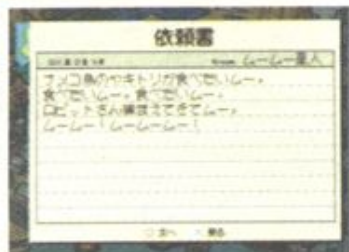 依頼書
ムームー星人
ナメコ鳥のヤキトリが食べたいムー。
食べたいムー。食べたいムー。
ロビットさん捕まえてきてムー。
ムームー！ムームームー！
次へ 戻る